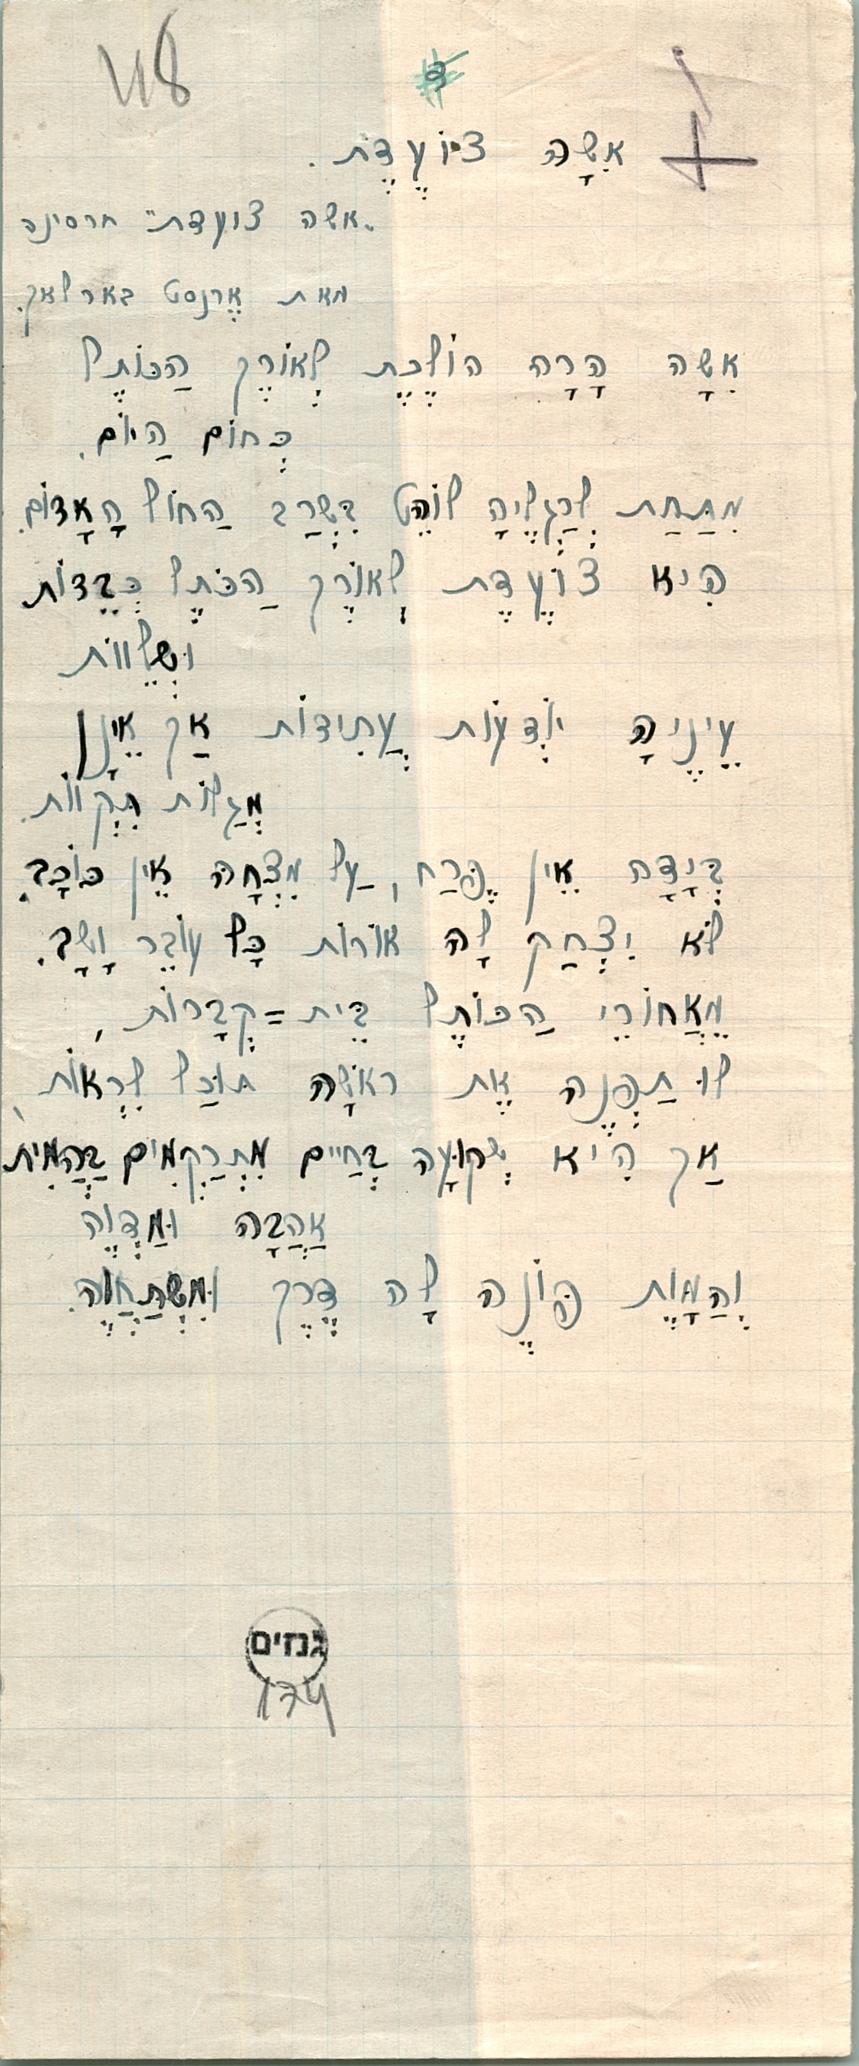 48
אִשָּׁה צוֹעֶדֶת.
"אשה צועדת" חרסינה
מאת אֶרנסט בארלאך.
אִשָּׁה הָרָה הוֹלֶכֶת לְאוֹרֶךְ הַכּוֹתֶל
כְּחוֹם הַיּוֹם.
מִתַּחַת לְרַגְלֶיהָ לוֹהֵט בִּשְׁרַב הַחוֹל הָאָדוֹם.
הִיא צוֹעֶדֶת לְאוֹרֶךְ הַכֹּתֶל כְּבֵדוֹת
וּשְׁלֵווֹת
עֵינֶיהָ יוֹדְעוֹת עֲתִידוֹת אַךְ אֵינָן
מְגַלּוֹת תִּקְווֹת.
בְּיָדָהּ אֵין פֶּרַח, עַל מִצְחָהּ אֵין כּוֹכָב.
לֹא יִצְחַק לָהּ אוֹרוֹת כָּל עוֹבֵר וָשָׁב.
מֵאֲחוֹרֵי הַכּוֹתֶל בֵּית=קְבָרוֹת,
לוּ תַּפְנֶה אֶת רֹאשָׁהּ תּוּכַל לִרְאוֹת,
אַךְ הִיא שְׁקוּעָה בְּחַיִּים מִתְרַקְּמִים בַּהֲמִית
אַהֲבָה וּמַדְוֶה
וְהַמָּוֶת פּוֹנֶה לָהּ דֶּרֶךְ וּמִשְׁתַּחֲוֶה.
גנזים
174